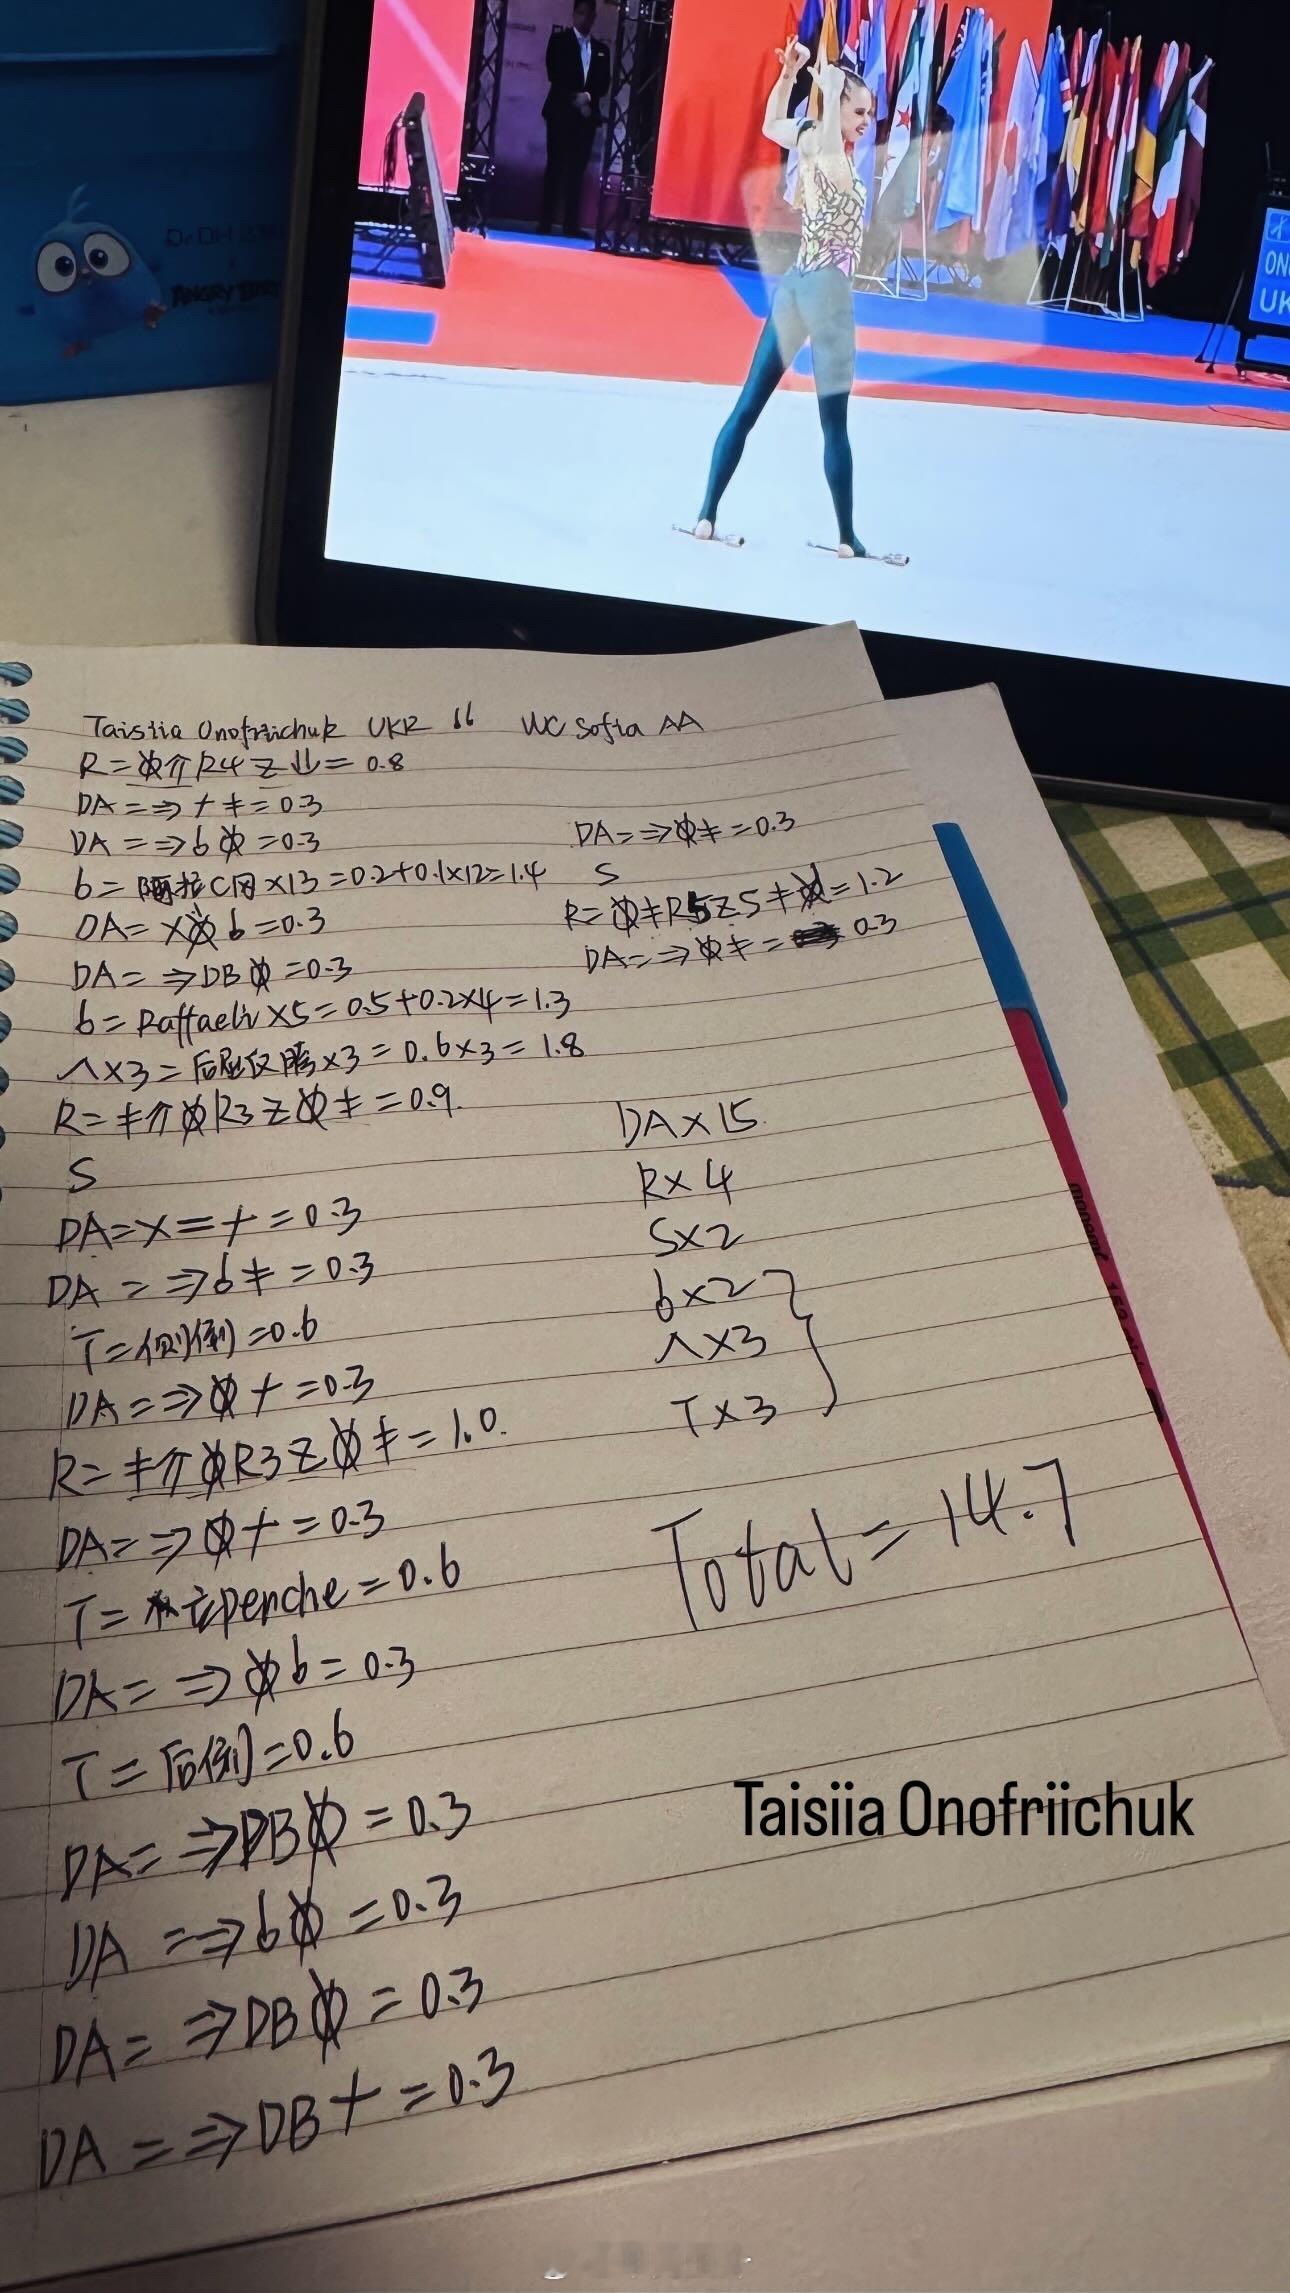 ANGRY BIRDS
ON
UK
Taistia Onofriichuk UKR WC Sofia AA
R = R4 Z ↓↓ = 0.8
DA = ⇒ + ‡ = 0.3
DA = ⇒ b ϕ = 0.3
b = C × 13 = 0.2 + 0.1 × 12 = 1.4
DA = × ϕ b = 0.3
DA = ⇒ DB ϕ = 0.3
b = Raffaeli × 5 = 0.5 + 0.2 × 4 = 1.3
∧ × 3 = 后屈反腾 × 3 = 0.6 × 3 = 1.8
R = ‡ 介 ϕ R3 Z ϕ ‡ = 0.9
S
DA = × = + = 0.3
DA = ⇒ b ‡ = 0.3
T = 侧倒 = 0.6
DA = ⇒ ϕ + = 0.3
R = ‡ 介 ϕ R3 Z ϕ ‡ = 1.0
DA = ⇒ ϕ + = 0.3
T = penche = 0.6
DA = ⇒ ϕ b = 0.3
T = 后倒 = 0.6
DA = ⇒ DB ϕ = 0.3
DA = ⇒ b ϕ = 0.3
DA = ⇒ DB ϕ = 0.3
DA = ⇒ DB + = 0.3
DA = ⇒ ϕ ‡ = 0.3
S
R = ϕ ‡ R5 Z S ‡ = 1.2
DA = ⇒ ϕ ‡ = 0.3
DA × 15
R × 4
S × 2
b × 2
∧ × 3
T × 3
Total = 14.7
Taisiia Onofriichuk